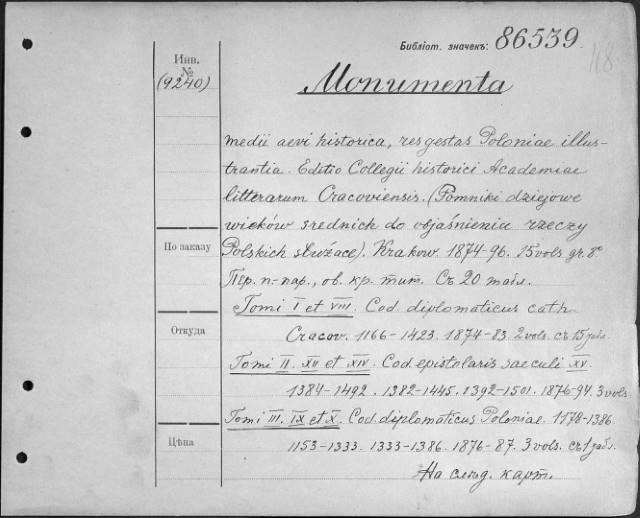 Библіот. значекъ: 86539.
118
Инв.
№
(9240)
Monumenta
medii aevi historica, res gestas Poloniae illus-
trantia. Editio Collegii historici Academiae
litterarum Cracoviensis. (Pomniki dziejowe
wieków średnich do objaśnienia rzeczy
По заказу
Polskich służace). Krakow. 1874-96. 15 vols gr. 8º
Пер. п.-пар., об. кр. тит. Съ 20 табл.
Tomi I et VIII. Cod. diplomaticus cath.
Откуда
Cracov. 1166-1423. 1874-83. 2 vols. съ 15 табл.
Tomi II. XII et XIV. Cod. epistolaris saeculi XV.
1384-1492. 1382-1445. 1392-1501. 1876-94. 3 vols.
Tomi III. IX et X. Cod. diplomaticus Poloniae. 1178-1386.
Цѣна
1153-1333. 1333-1386. 1876-87. 3 vols. съ 1 табл.
На слѣд. карт.